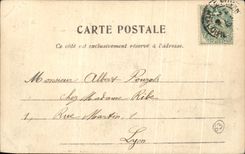 CARTE POSTALE
Ce côté est exclusivement réservé à l'adresse.
Monsieur Albert Pouzols
chez Madame Ribe
1, Rue Martin, 1
Lyon